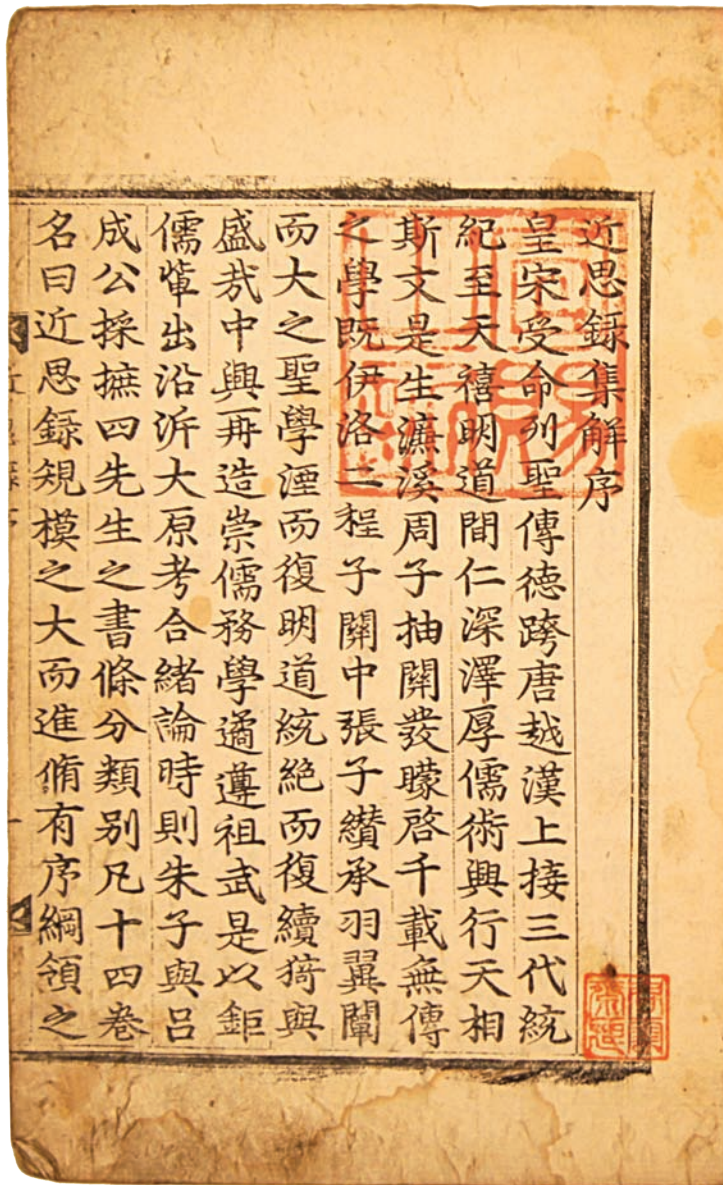 近思録集解序
皇宋受命列聖傳德跨唐越漢上接三代統
紀至天禧明道間仁深澤厚儒術興行天相
斯文是生濂溪周子抽關發矇啓千載無傳
之學既伊洛二程子關中張子纘承羽翼闡
而大之聖學湮而復明道統絶而復續猗與
盛㦲中興再造崇儒務學遹遵祖武是以鉅
儒軰出沿泝大原考合緒論時則朱子與吕
成公採摭四先生之書條分類别凡十四卷
名曰近思録規模之大而進脩有序綱領之